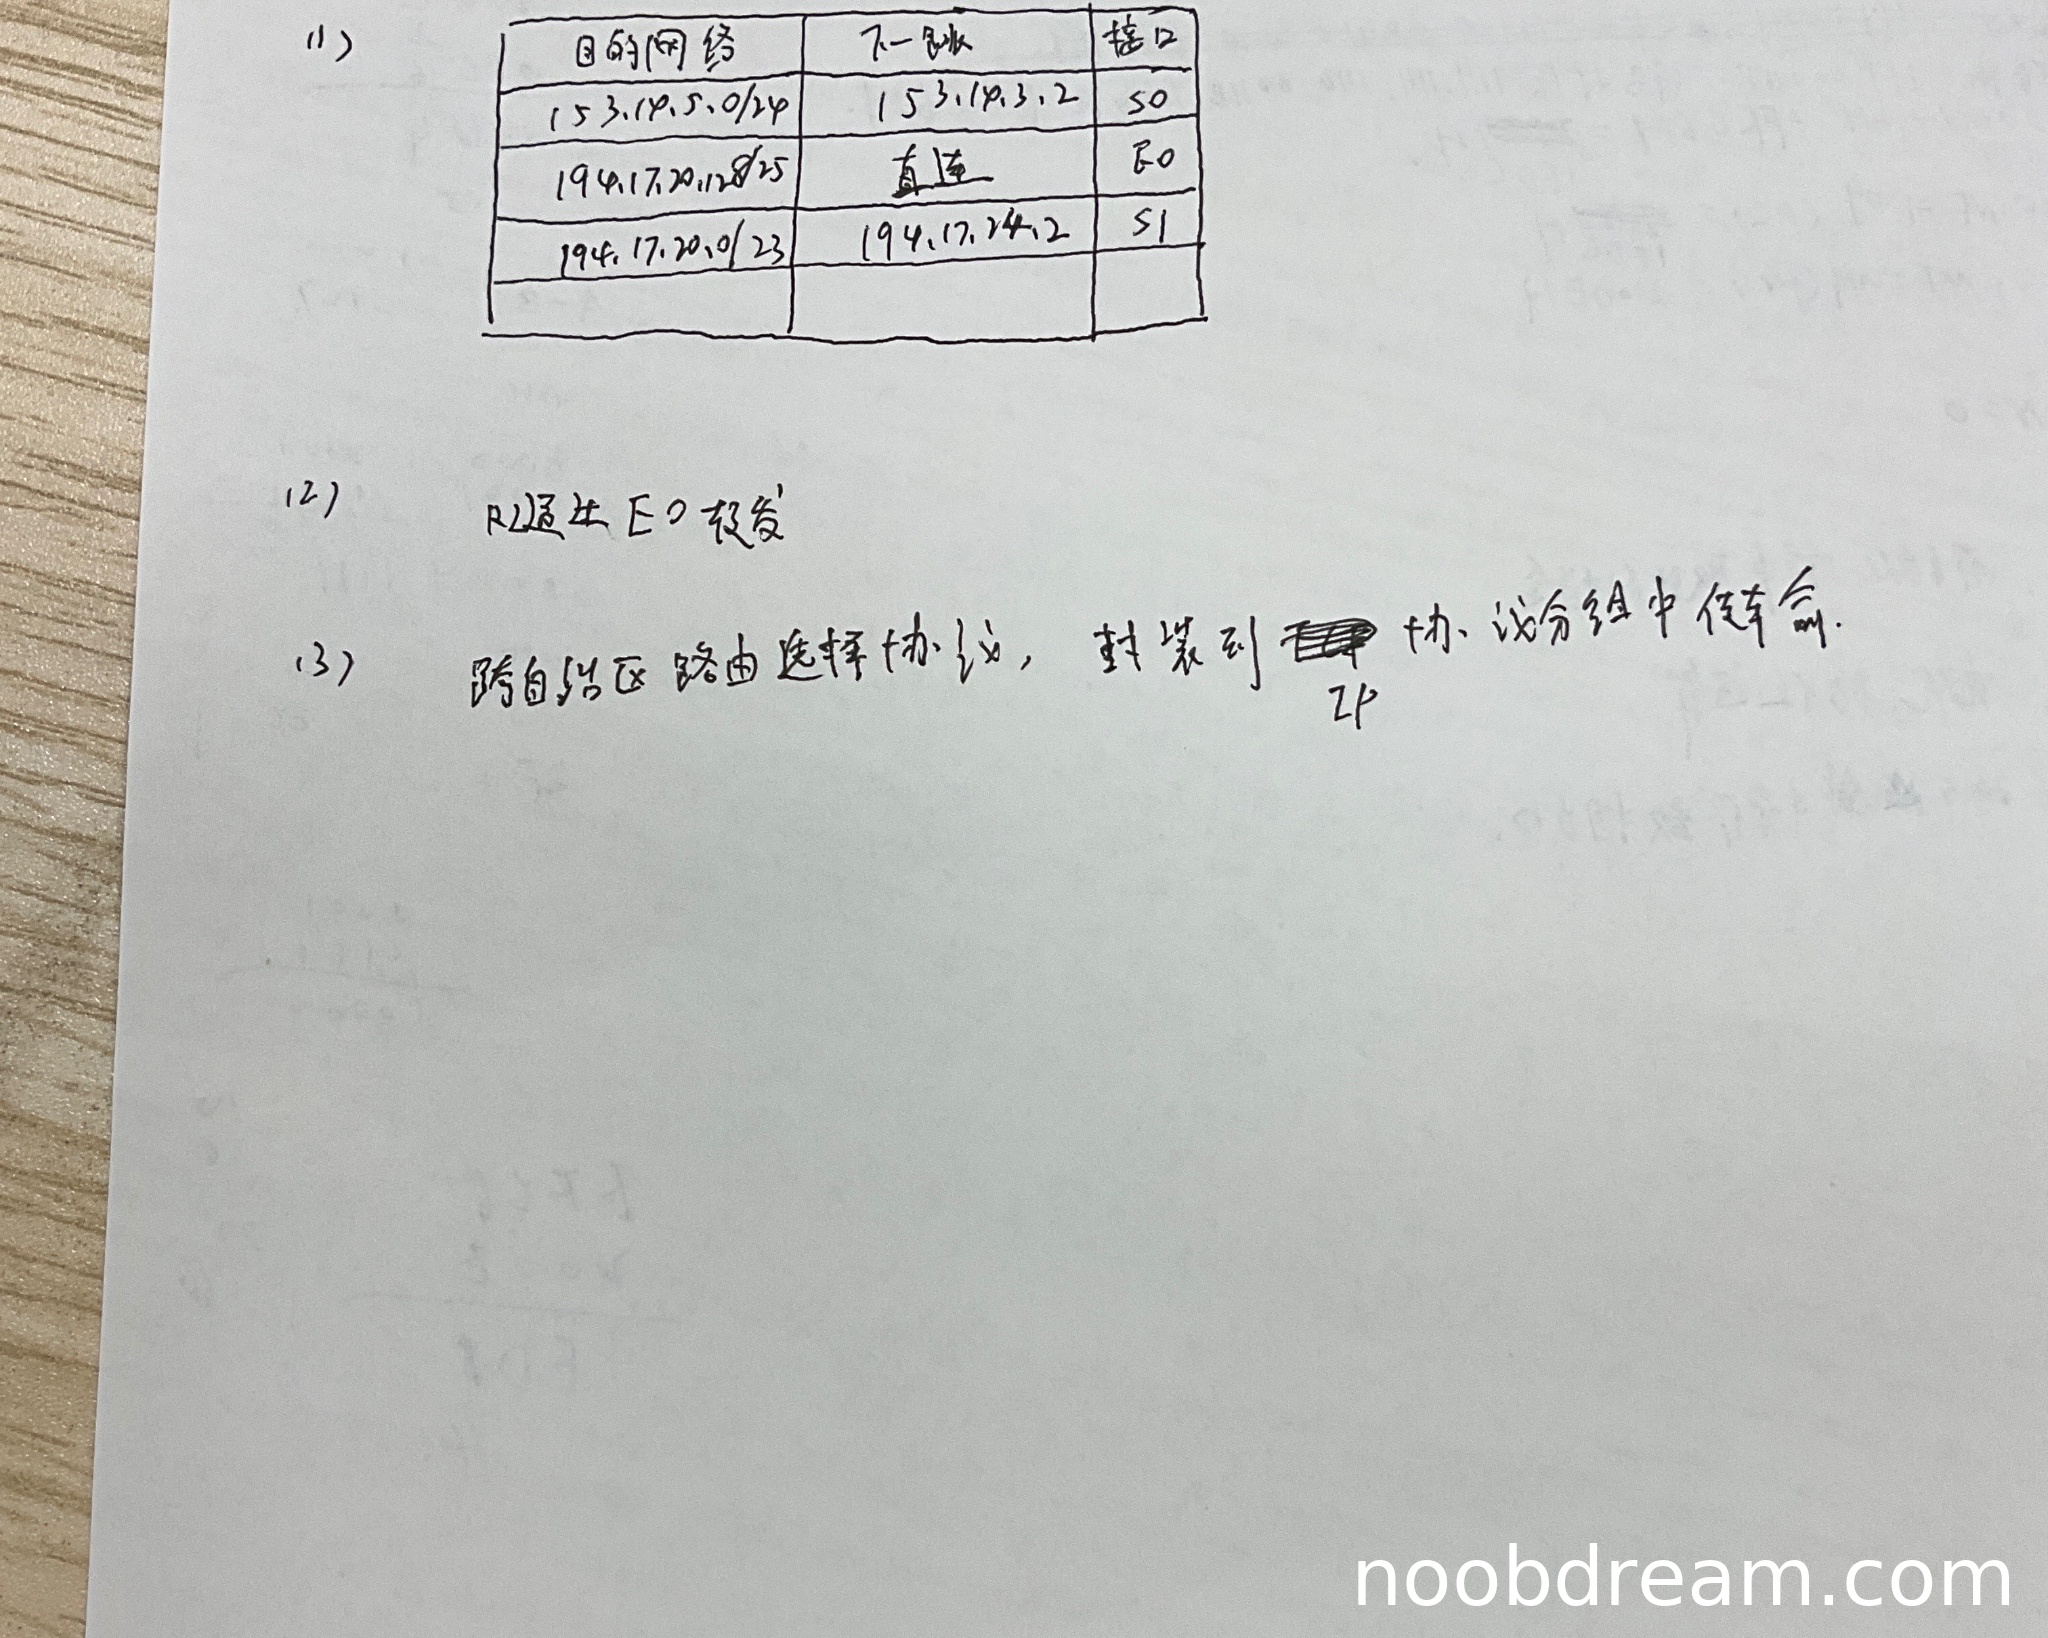 (1)
目的网络 下一跳 接口
153.14.5.0/24 153.14.3.2 S0
194.17.20.128/25 直连 E0
194.17.20.0/23 194.17.24.2 S1
(2) R2通过E0转发
(3) 跨自治区路由选择协议, 封装到 协议分组中传输.
IP
noobdream.com